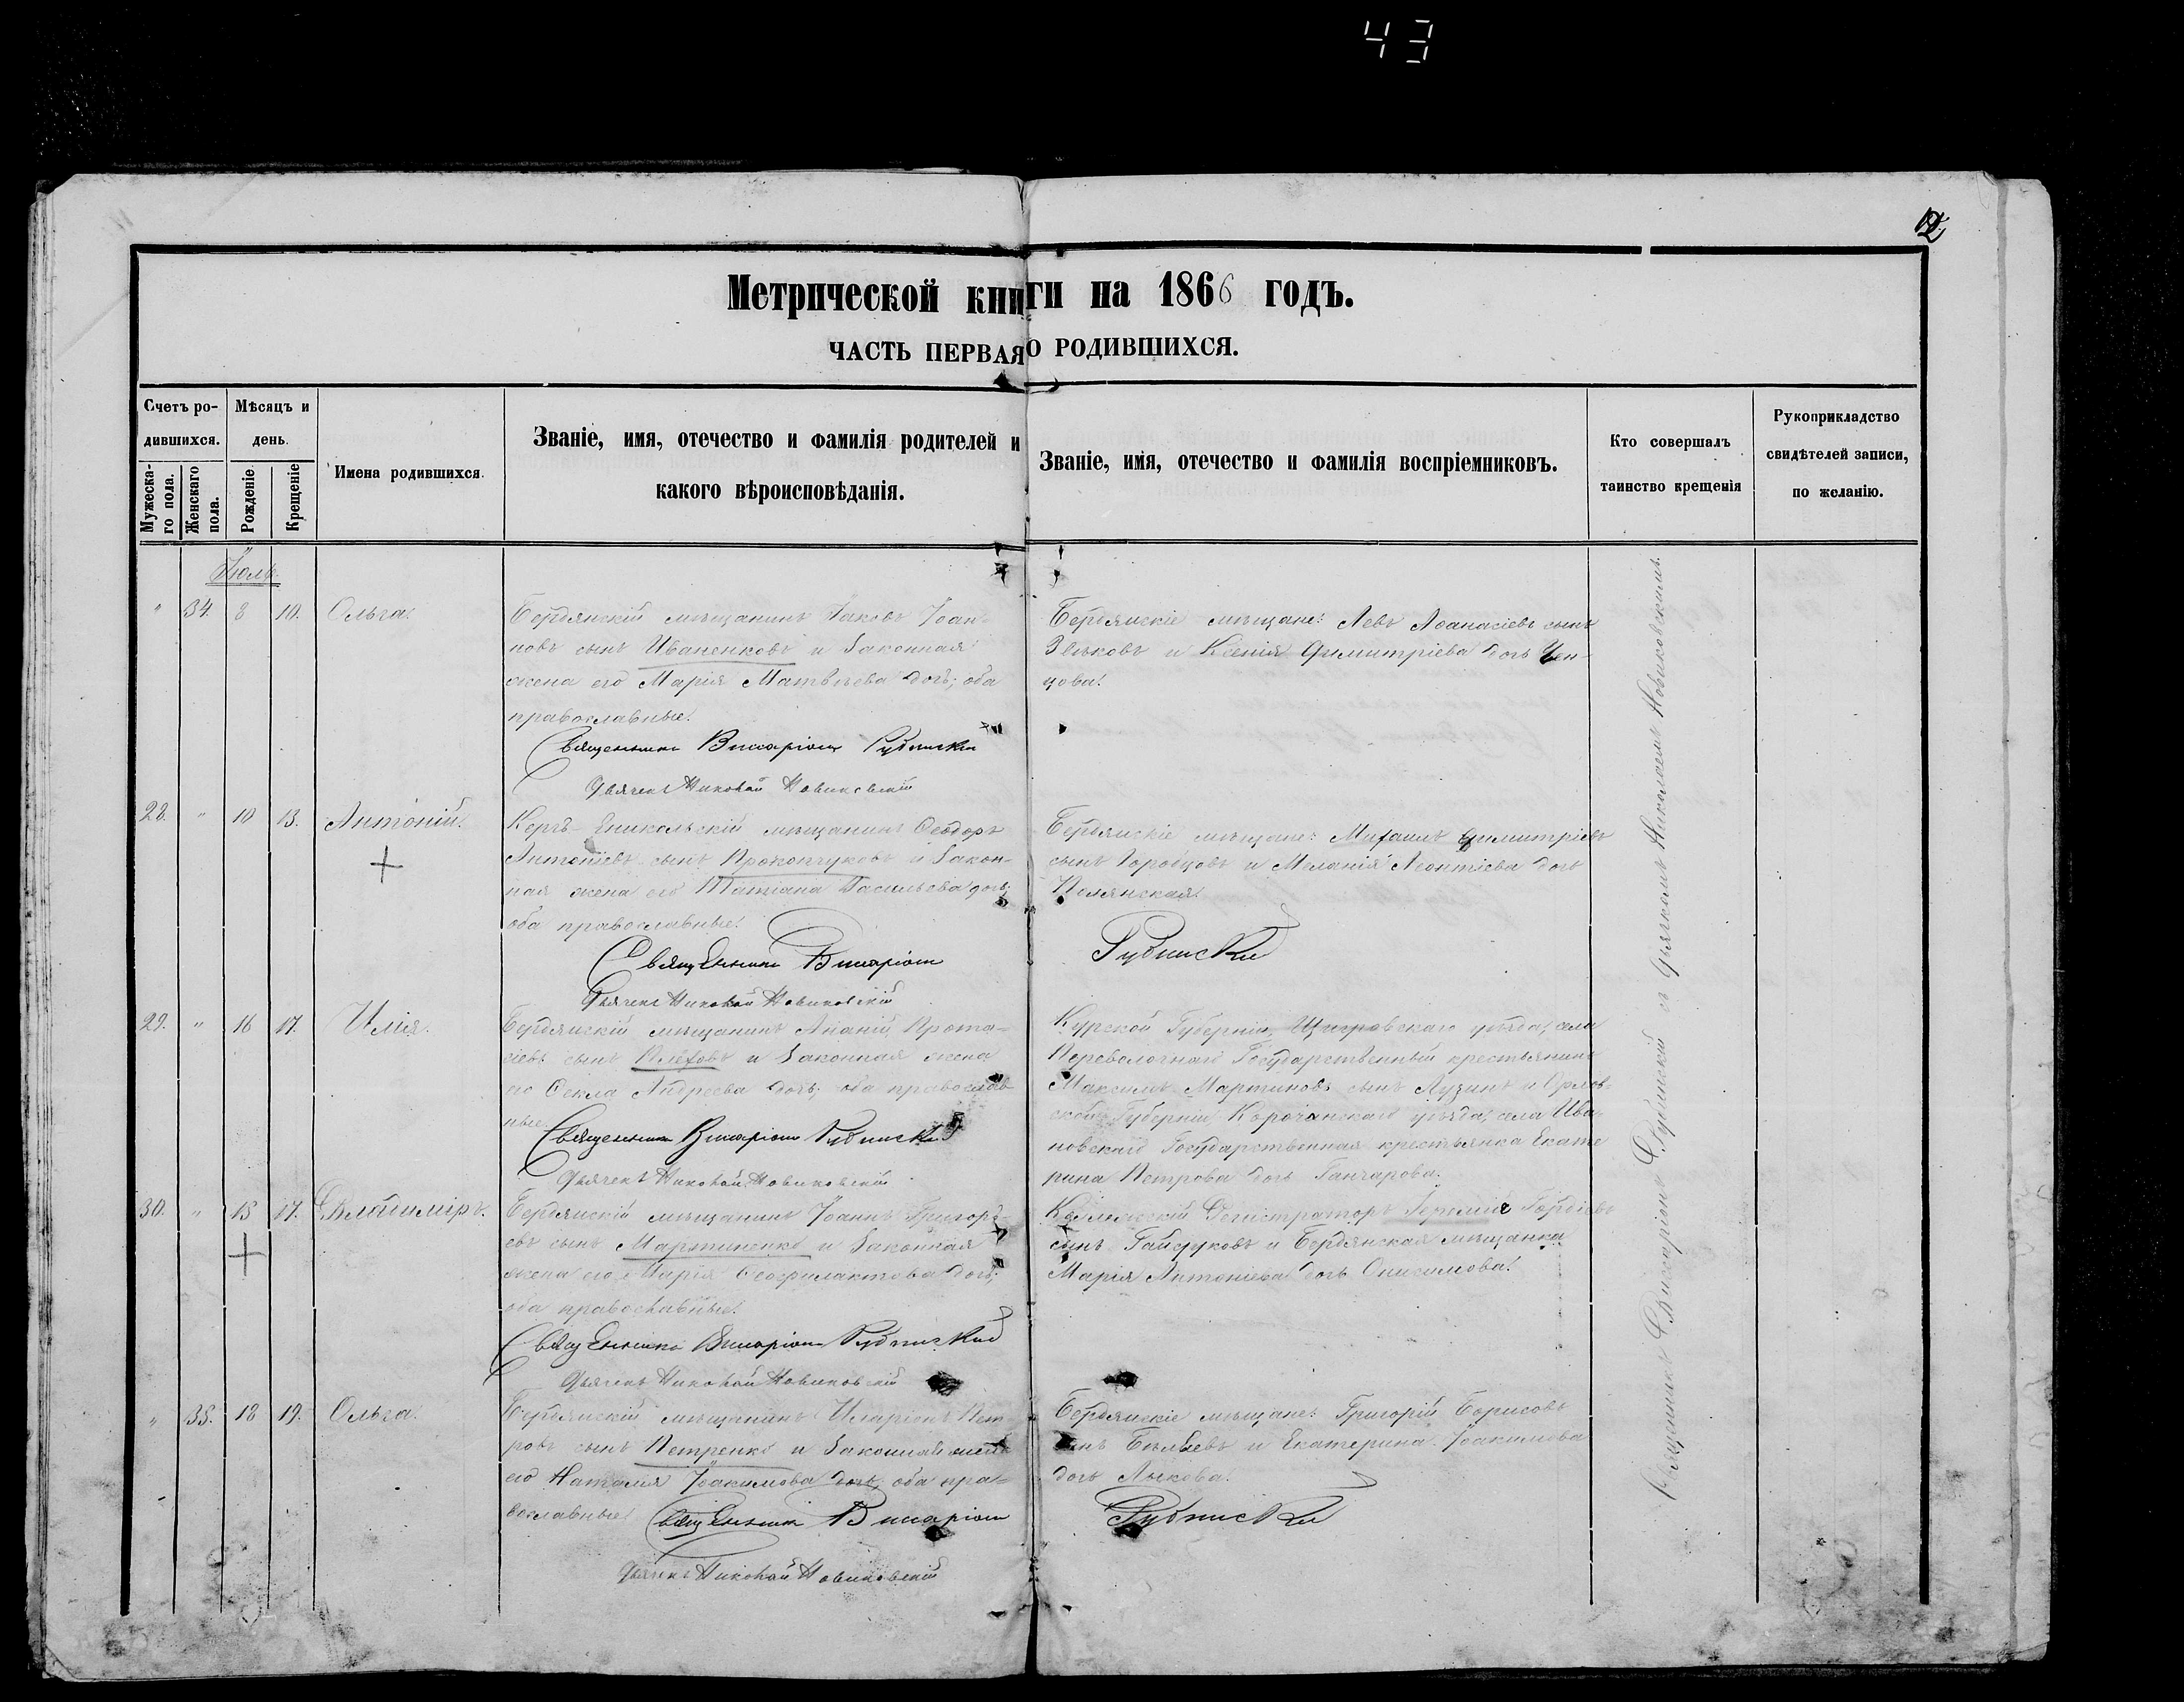 43
12
Метрической книги на 1866 годъ.
ЧАСТЬ ПЕРВАЯ О РОДИВШИХСЯ.
Счетъ ро-
дившихся.
Мужеска-
го пола.
Женскаго
пола.
Мѣсяцъ и
день.
Рожденіе
Крещеніе
Имена родившихся.
Званіе, имя, отечество и фамилія родителей и
какого вѣроисповѣданія.
Званіе, имя, отечество и фамилія воспріемниковъ.
Кто совершалъ
таинство крещенія
Рукоприкладство
свидѣтелей записи,
по желанію.
Іюль.
" 34. 8 10. Ольга.
Бердянскій мѣщанинъ Іаковъ Іоан-
новъ сынъ Иваненковъ и законная
жена его Марія Матвѣева дочь; оба
православные.
Священникъ Виссаріонъ
Дьячекъ Николай Новиковскій
Бердянскіе мѣщане: Левъ Аѳанасіевъ сынъ
Звѣковъ и Ксенія Димитріева дочь Чен-
цова.
28. " 10 13. Антоній.
Керчь-Еникольскій мѣщанинъ Ѳеодоръ
Антоніевъ сынъ Прокопчуковъ и закон-
ная жена его Татіана Васильева дочь;
оба православные.
Священникъ Виссаріонъ
Дьячекъ Николай Новиковскій
Бердянскіе мѣщане: Михаилъ Димитріевъ
сынъ и Меланія Леонтіева дочь
29. " 16 17. Илія.
Бердянскій мѣщанинъ Ананій Прота-
сіевъ сынъ Плеховъ и законная жена
его Ѳекла Андреева дочь; оба православ
ные
Священникъ Виссаріонъ
Дьячекъ Николай Новиковскій
Курской Губерніи, Щигровскаго уѣзда, села
Переволочнаго Государственный крестьянинъ
Максимъ Мартиновъ сынъ Лузинъ и Орлов-
ской Губерніи, Корочанскаго уѣзда, села Ива-
новскаго Государственная крестьянка Екате
рина Петрова дочь Ганчарова.
30. " 15 17. Владиміръ.
Бердянскій мѣщанинъ Іоаннъ Григорь-
евъ сынъ Мартиненко и законная
жена его Марія Ѳеофилактова дочь;
оба православные.
Священникъ Виссаріонъ
Дьячекъ Николай Новиковскій
Регистраторъ Іеремія Гордіевъ
сынъ Гайдуковъ и Бердянская мѣщанка
Марія Антоніева дочь Онисимова.
" 35. 18 19. Ольга.
Бердянскій мѣщанинъ Иларіонъ Пет-
ровъ сынъ Петренко и законная жена
его Наталія Іоакимова дочь, оба пра-
вославные.
Священникъ Виссаріонъ
Дьячекъ Николай Новиковскій
Бердянскіе мѣщане: Григорій Борисовъ
сынъ Бѣляевъ и Екатерина Іоакимова
дочь Лыкова.
Священникъ Виссаріонъ съ дьячкомъ Николаемъ Новиковскимъ.